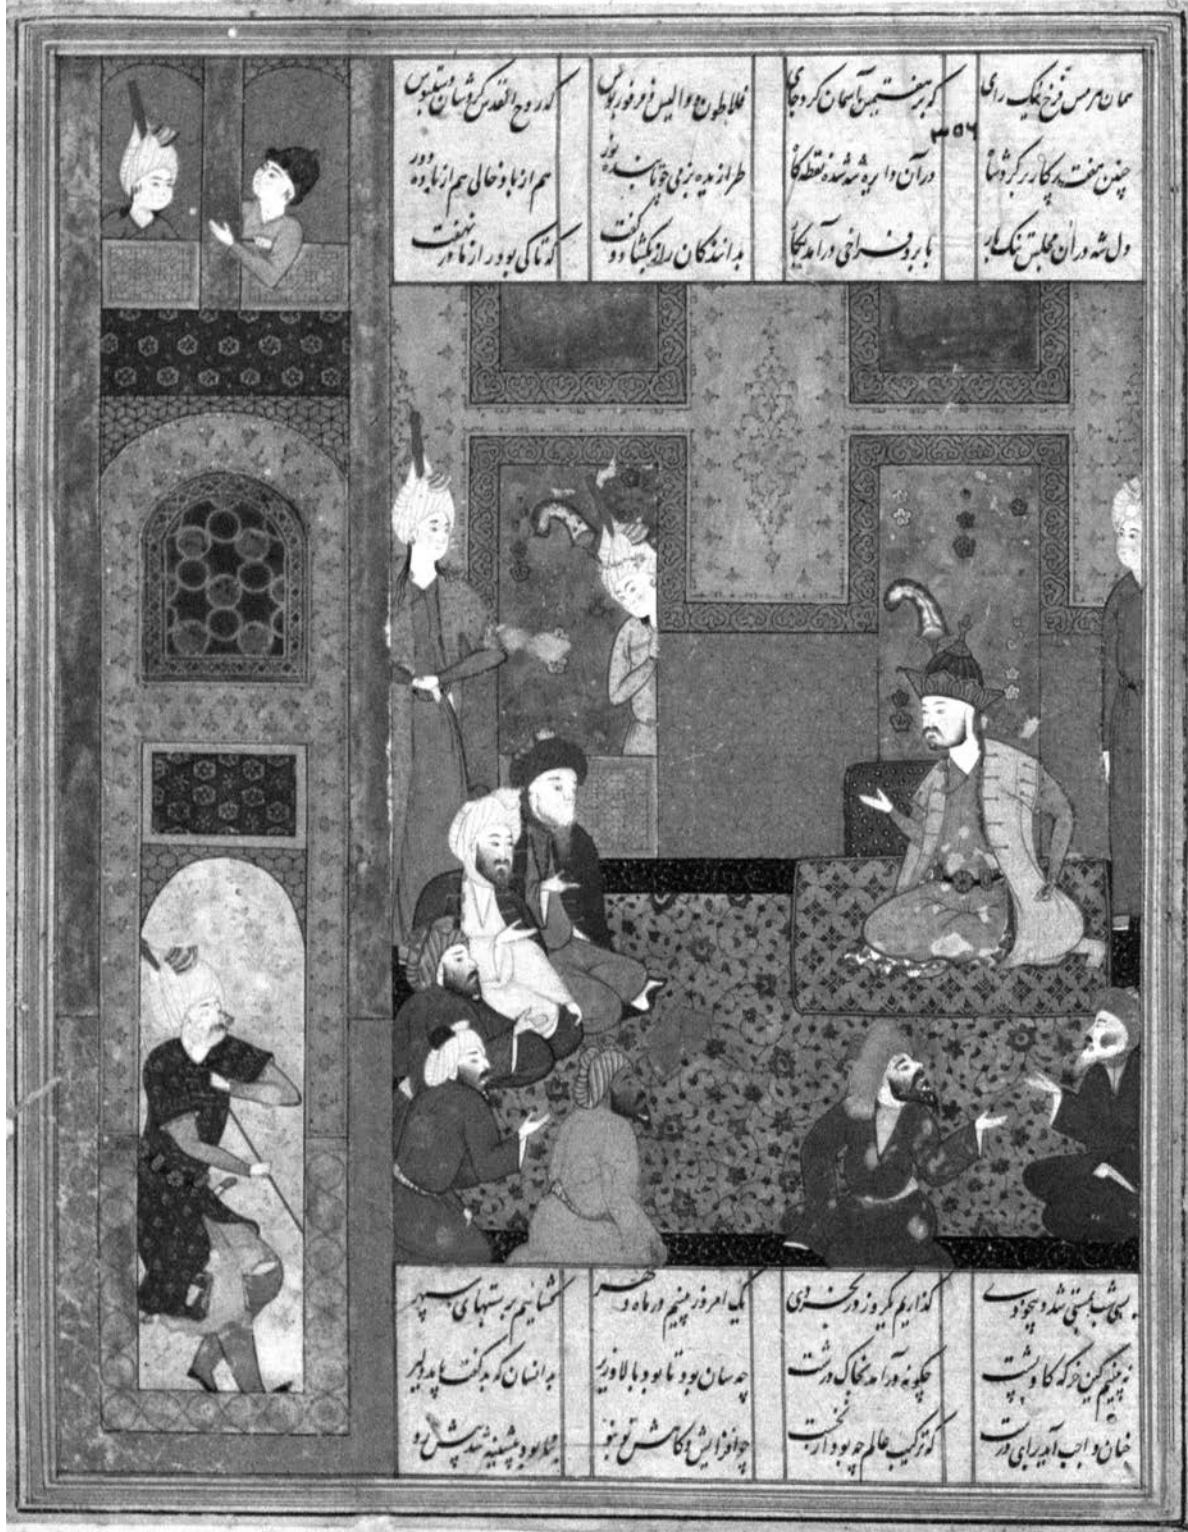 همان هرمس فرخ نیک رای که بر هفتمین آسمان کرد جای فلاطون و والیس و فرفوریوس که روح القدس کردشان دستبوس
۳۵۶
چنین هفت پرکار بر کرد شاه در آن دایره شه شده نقطه کاه طرازیده بزمی چو تابنده هور هم از باد خالی هم از باده دور
دل شه در آن مجلس تنک بار بابرو فراخی درآمد بکار بدانندکان راز بکشاد و کفت که تا کی بود راز ما در نهفت
بسی شب بمستی شد و بیخودی کذاریم یکروز در بخردی یک امروز بینیم در ماه و مهر کشائیم بر بستهای سپهر
به بینیم کین خرکه کاو پشت چکونه درآمد بخاک درشت چه سان بود تا بود بالا و زیر بدانسان که بد کفت باید دلیر
چنان واجب آید برای درست که ترکیب عالم چه بود از نخست چه افزایش و کاهش نو بنو بنا بود پیشینه شد پیش رو